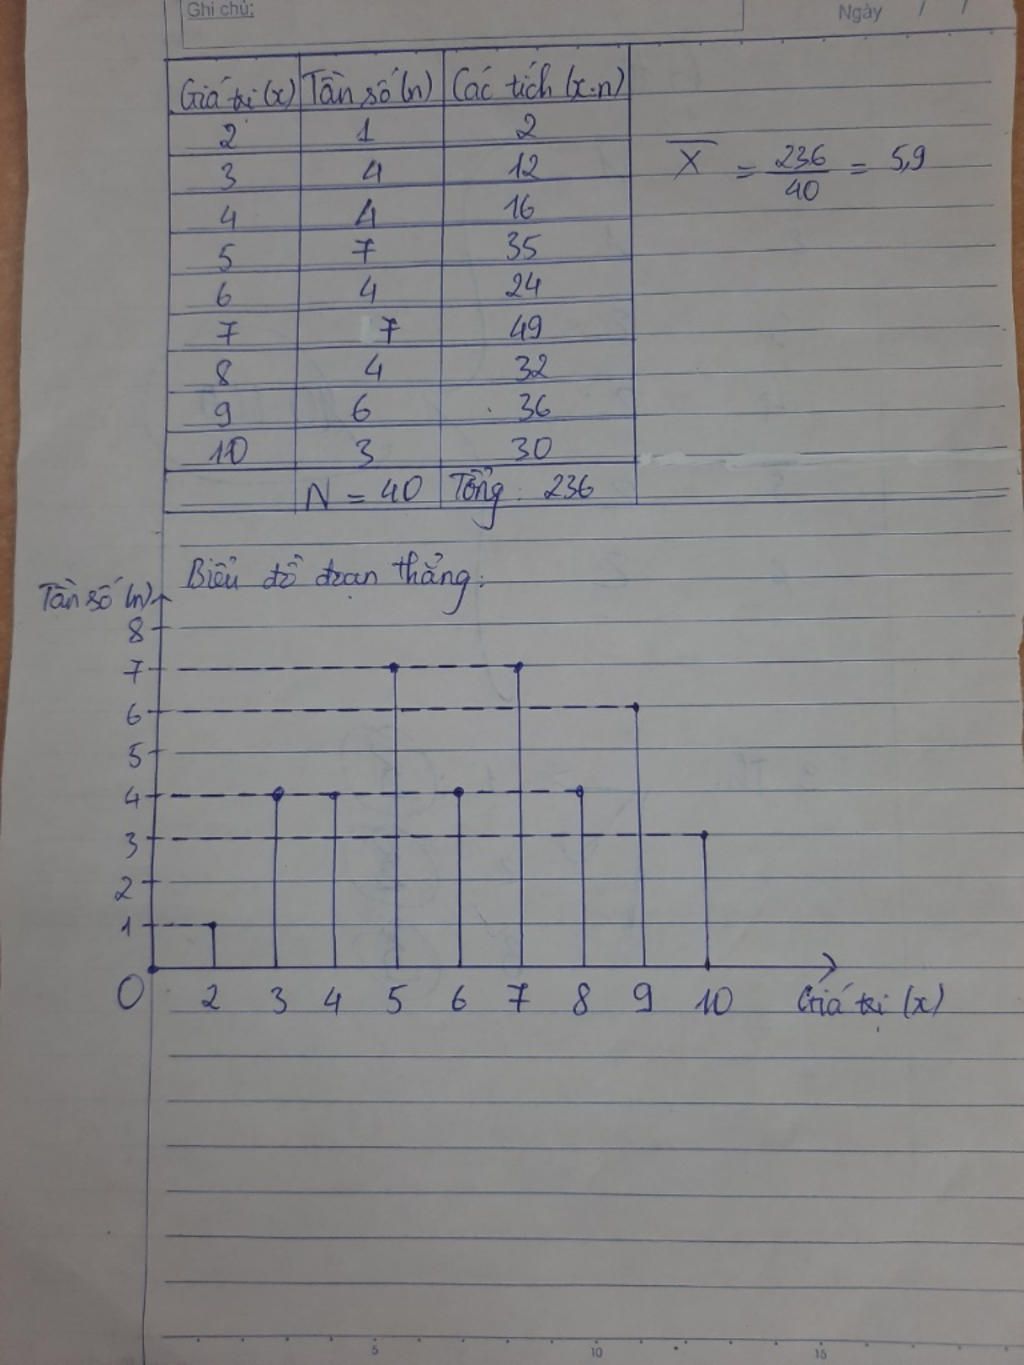 Ghi chú:
Ngày / /
Giá trị (x) Tần số (n) Các tích (x.n)
2 1 2
3 4 12
4 4 16
5 7 35
6 4 24
7 7 49
8 4 32
9 6 36
10 3 30
N = 40 Tổng: 236
X̄ = 236/40 = 5,9
Biểu đồ đoạn thẳng:
Tần số (n)
8
7
6
5
4
3
2
1
O 2 3 4 5 6 7 8 9 10 Giá trị (x)
5 10 15